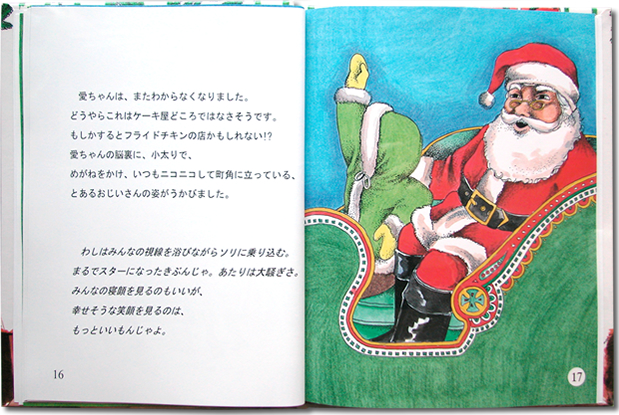 愛ちゃんは、またわからなくなりました。
どうやらこれはケーキ屋どころではなさそうです。
もしかするとフライドチキンの店かもしれない!?
愛ちゃんの脳裏に、小太りで、
めがねをかけ、いつもニコニコして町角に立っている、
とあるおじいさんの姿がうかびました。
わしはみんなの視線を浴びながらソリに乗り込む。
まるでスターになったきぶんじゃ。あたりは大騒ぎさ。
みんなの寝顔を見るのもいいが、
幸せそうな笑顔を見るのは、
もっといいもんじゃよ。
16
17